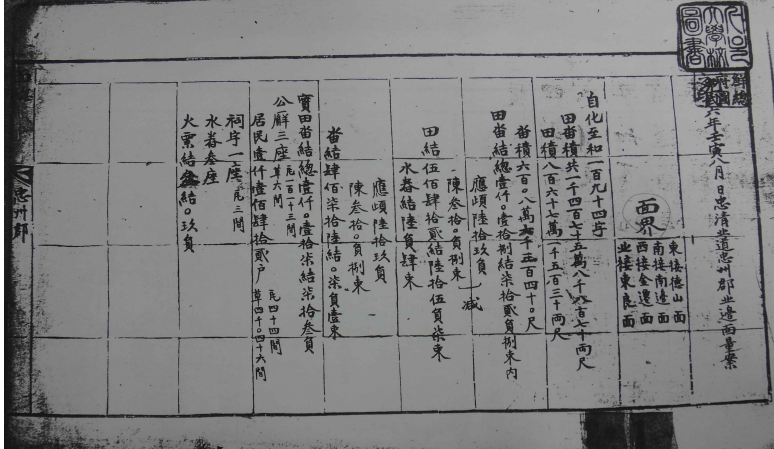 六年壬寅八月日忠清北道忠州郡北邊面量案
面界
東接德山面
南接南邊面
西接金遷面
北接東良面
自化至和一百九十四字
田畓積共一千四百七十五萬八千八百七十両尺
田積八百六十七萬一千五百三十両尺
畓積六百〇八萬七千三百四十〇尺
田畓結總壹仟〇壹拾捌結柒拾貳負捌束內
應頉陸拾玖負
陳叁拾〇負捌束
减
田結伍佰肆拾貳結陸拾伍負柒束
水舂結陸負肆束
應頉陸拾玖負
陳叁拾〇負捌束
畓結肆佰柒拾陸結〇柒負壹束
實田畓結總壹仟〇壹拾柒結柒拾叁負
公廨三座
瓦一百二十三間
草六間
居民壹仟壹佰肆拾貳戶
瓦四十四間
草四千〇四十六間
祠宇一座
瓦三間
水舂叁座
火粟結
結〇玖負
忠州郡